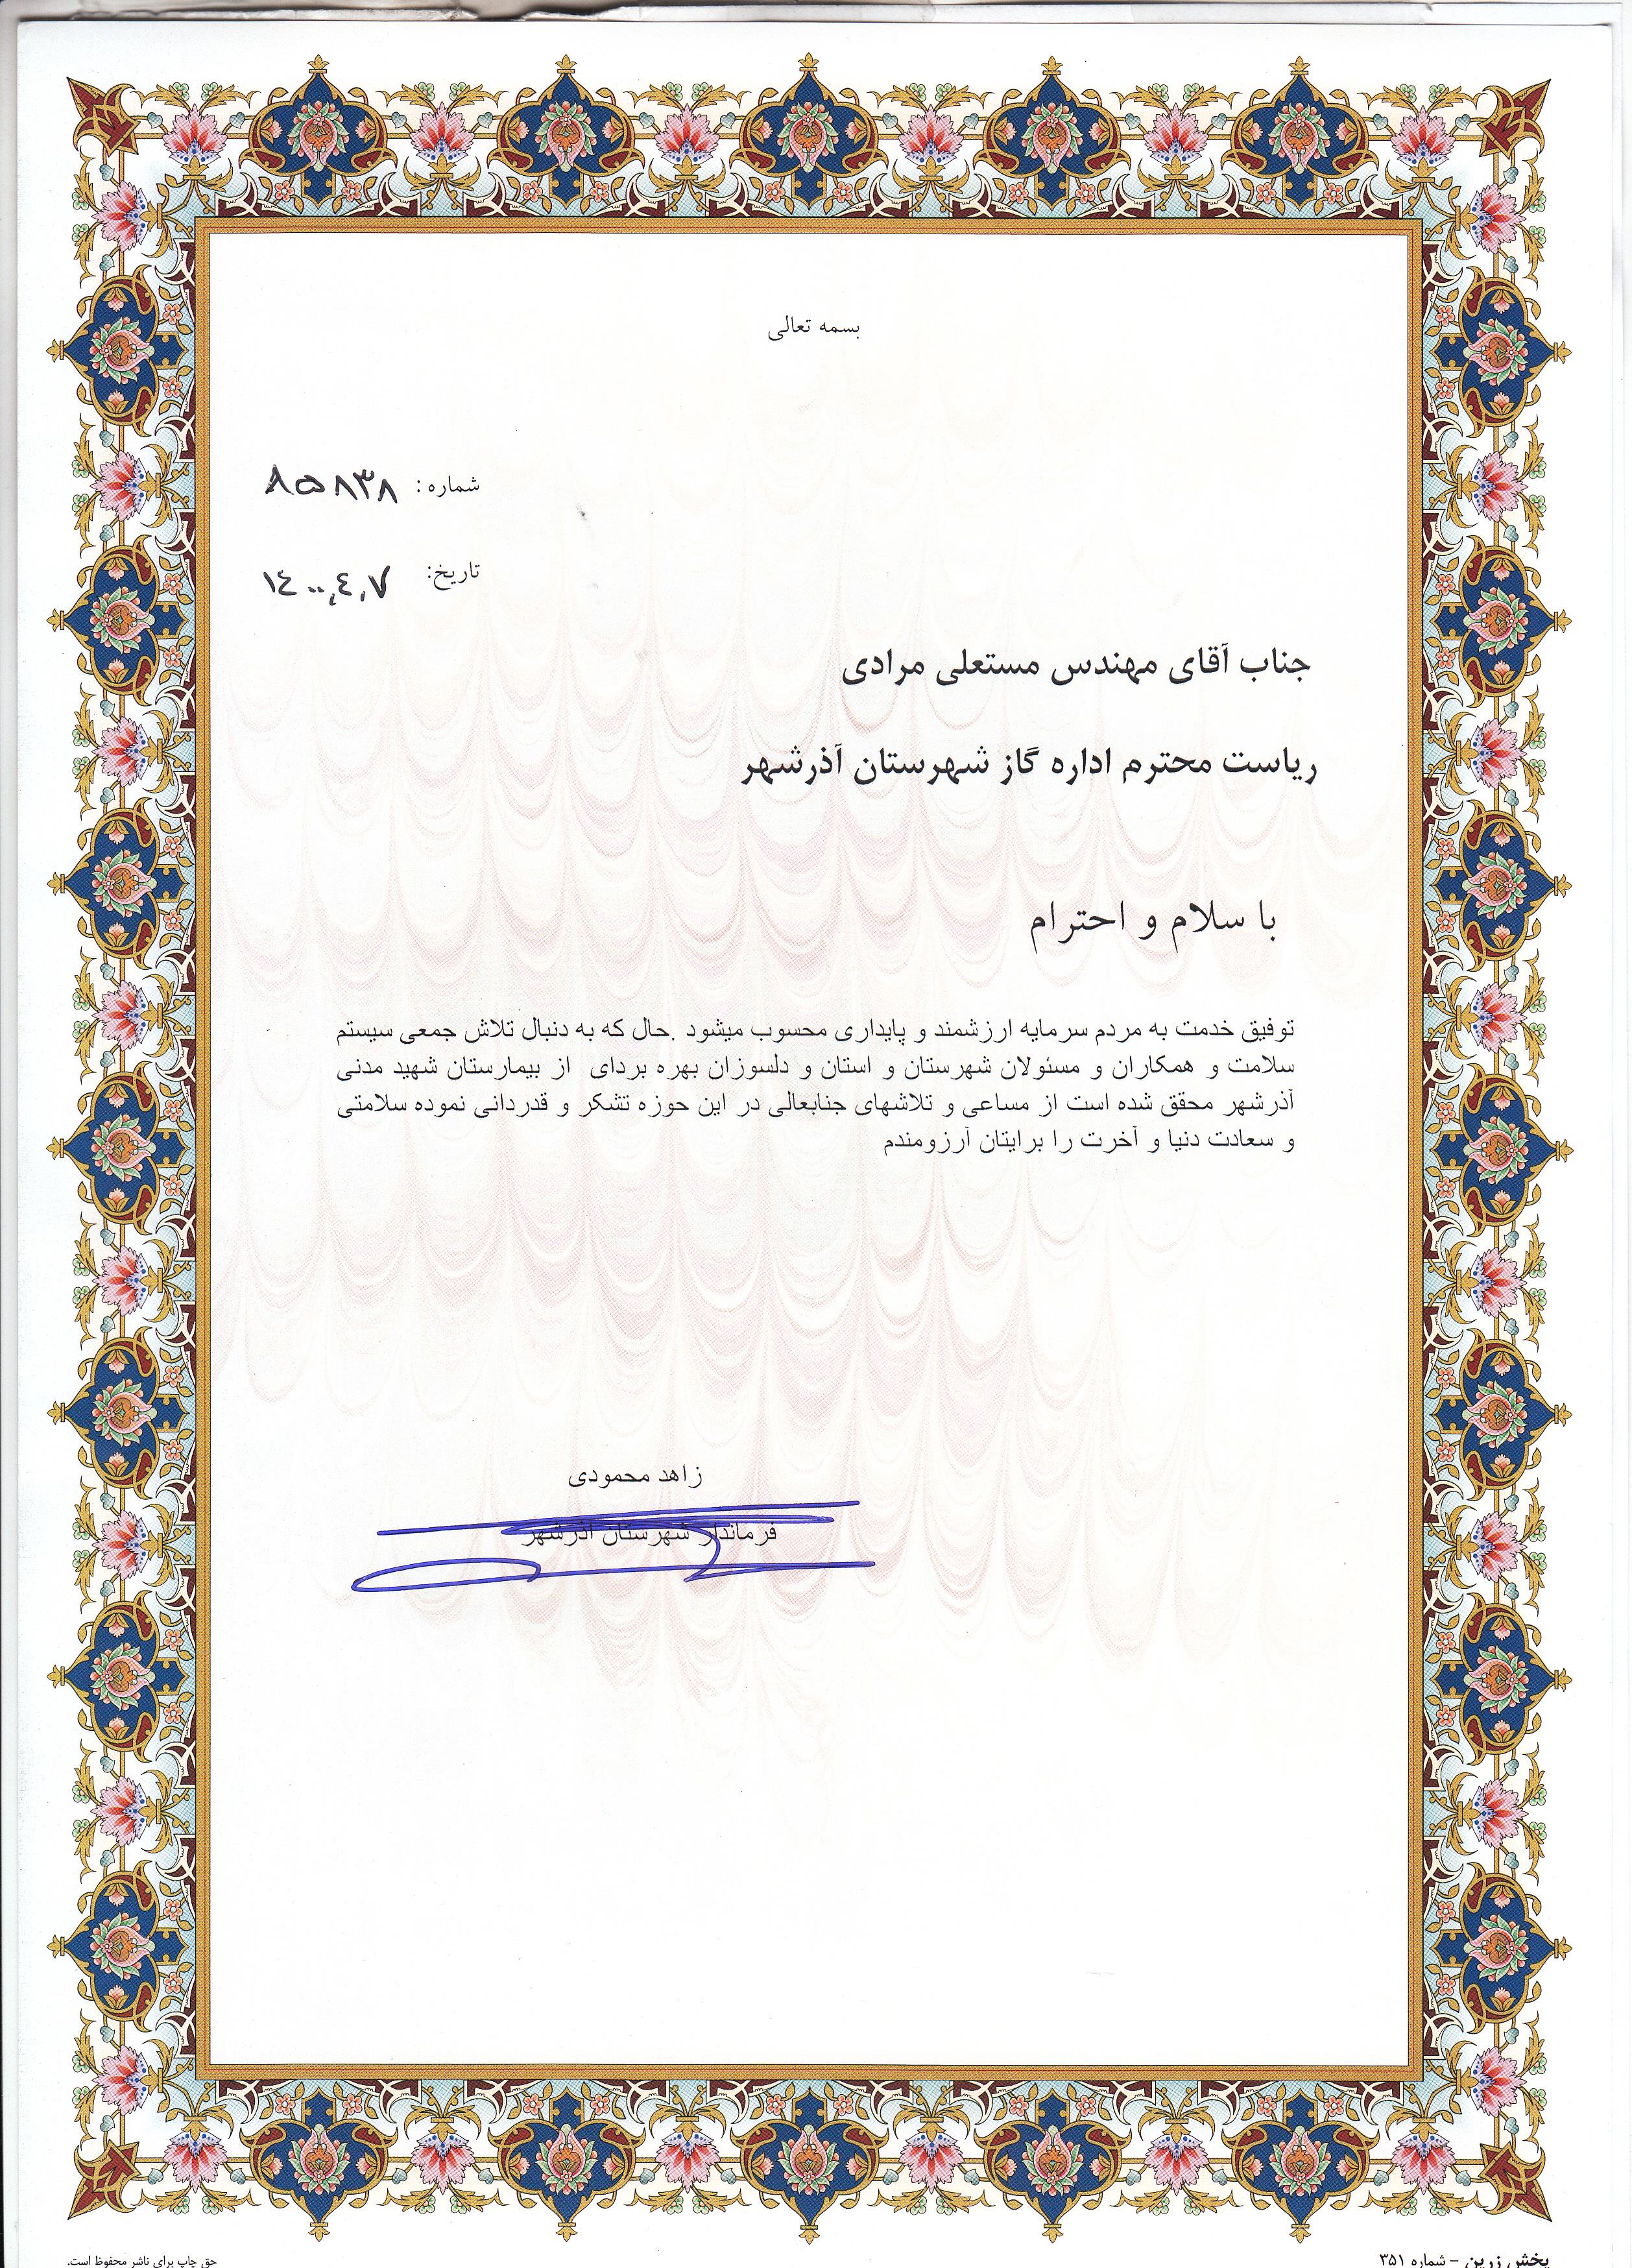 بسمه تعالی
شماره : ۸۵۸۳۸
تاریخ: ۱۴۰۰,۴,۷
جناب آقای مهندس مستعلی مرادی
ریاست محترم اداره گاز شهرستان آذرشهر
با سلام و احترام
توفیق خدمت به مردم سرمایه ارزشمند و پایداری محسوب میشود .حال که به دنبال تلاش جمعی سیستم
سلامت و همکاران و مسئولان شهرستان و استان و دلسوزان بهره بردای از بیمارستان شهید مدنی
آذرشهر محقق شده است از مساعی و تلاشهای جنابعالی در این حوزه تشکر و قدردانی نموده سلامتی
و سعادت دنیا و آخرت را برایتان آرزومندم
زاهد محمودی
فرماندار شهرستان آذرشهر
پخش زرین – شماره ۳۵۱
حق چاپ برای ناشر محفوظ است.